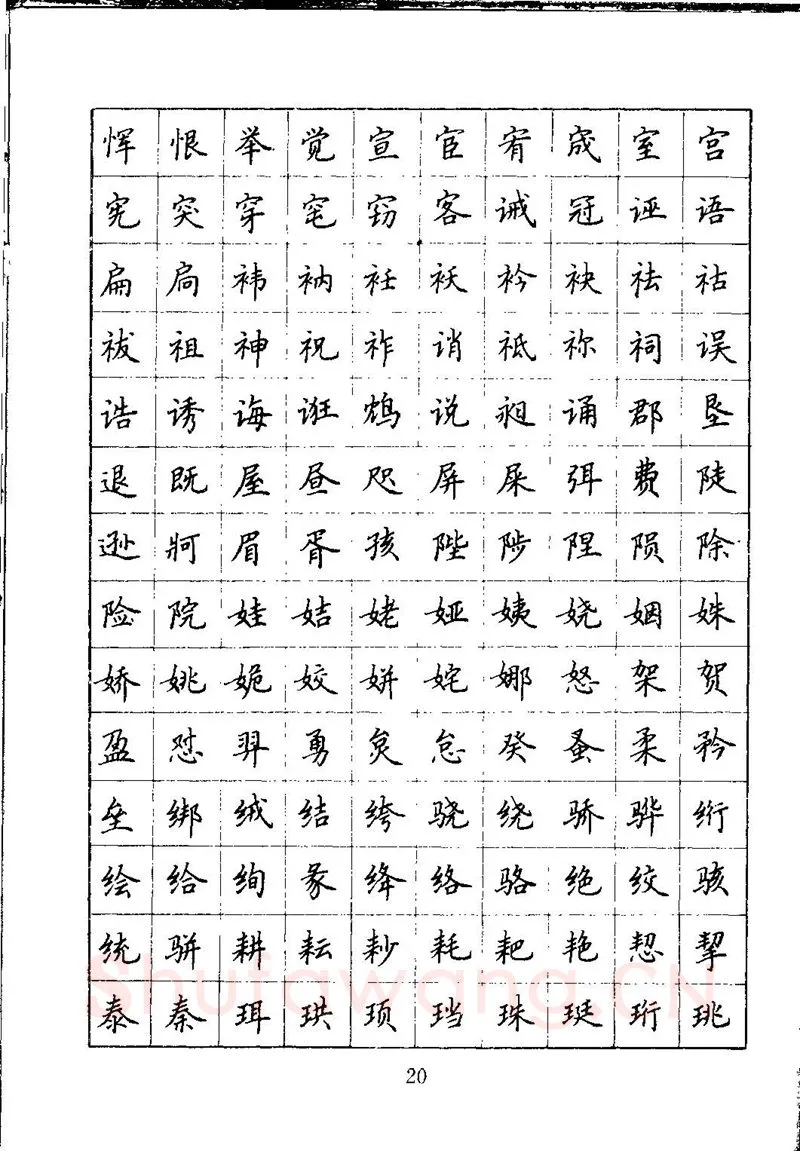 恽恨举觉宣宦宥宬室宫
宪突穿窀窃客诫冠诬语
扁扃袆衲衽袄衿袂祛祜
祓祖神祝祚诮祗祢祠误
诰诱诲诳鸩说昶诵郡垦
退既屋昼咫屏屎弭费陡
逊牁眉胥孩陛陟陧陨除
险院娃姞姥娅姨娆姻姝
娇姚姽姣姘姹娜怒架贺
盈怼羿勇炱怠癸蚤柔矜
垒绑绒结绔骁绕骄骅绗
绘给绚彖绛络骆绝绞骇
统骈耕耘耖耗耙艳恝挈
泰秦珥珙顼珰珠珽珩珧
20
Shufawang.CN